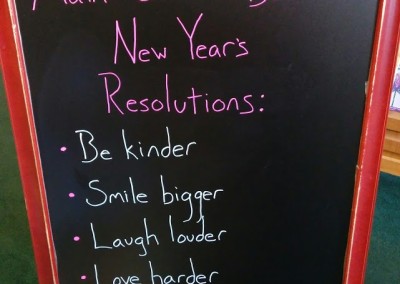 New Year's
Resolutions:
• Be kinder
• Smile bigger
• Laugh louder
• Love harder